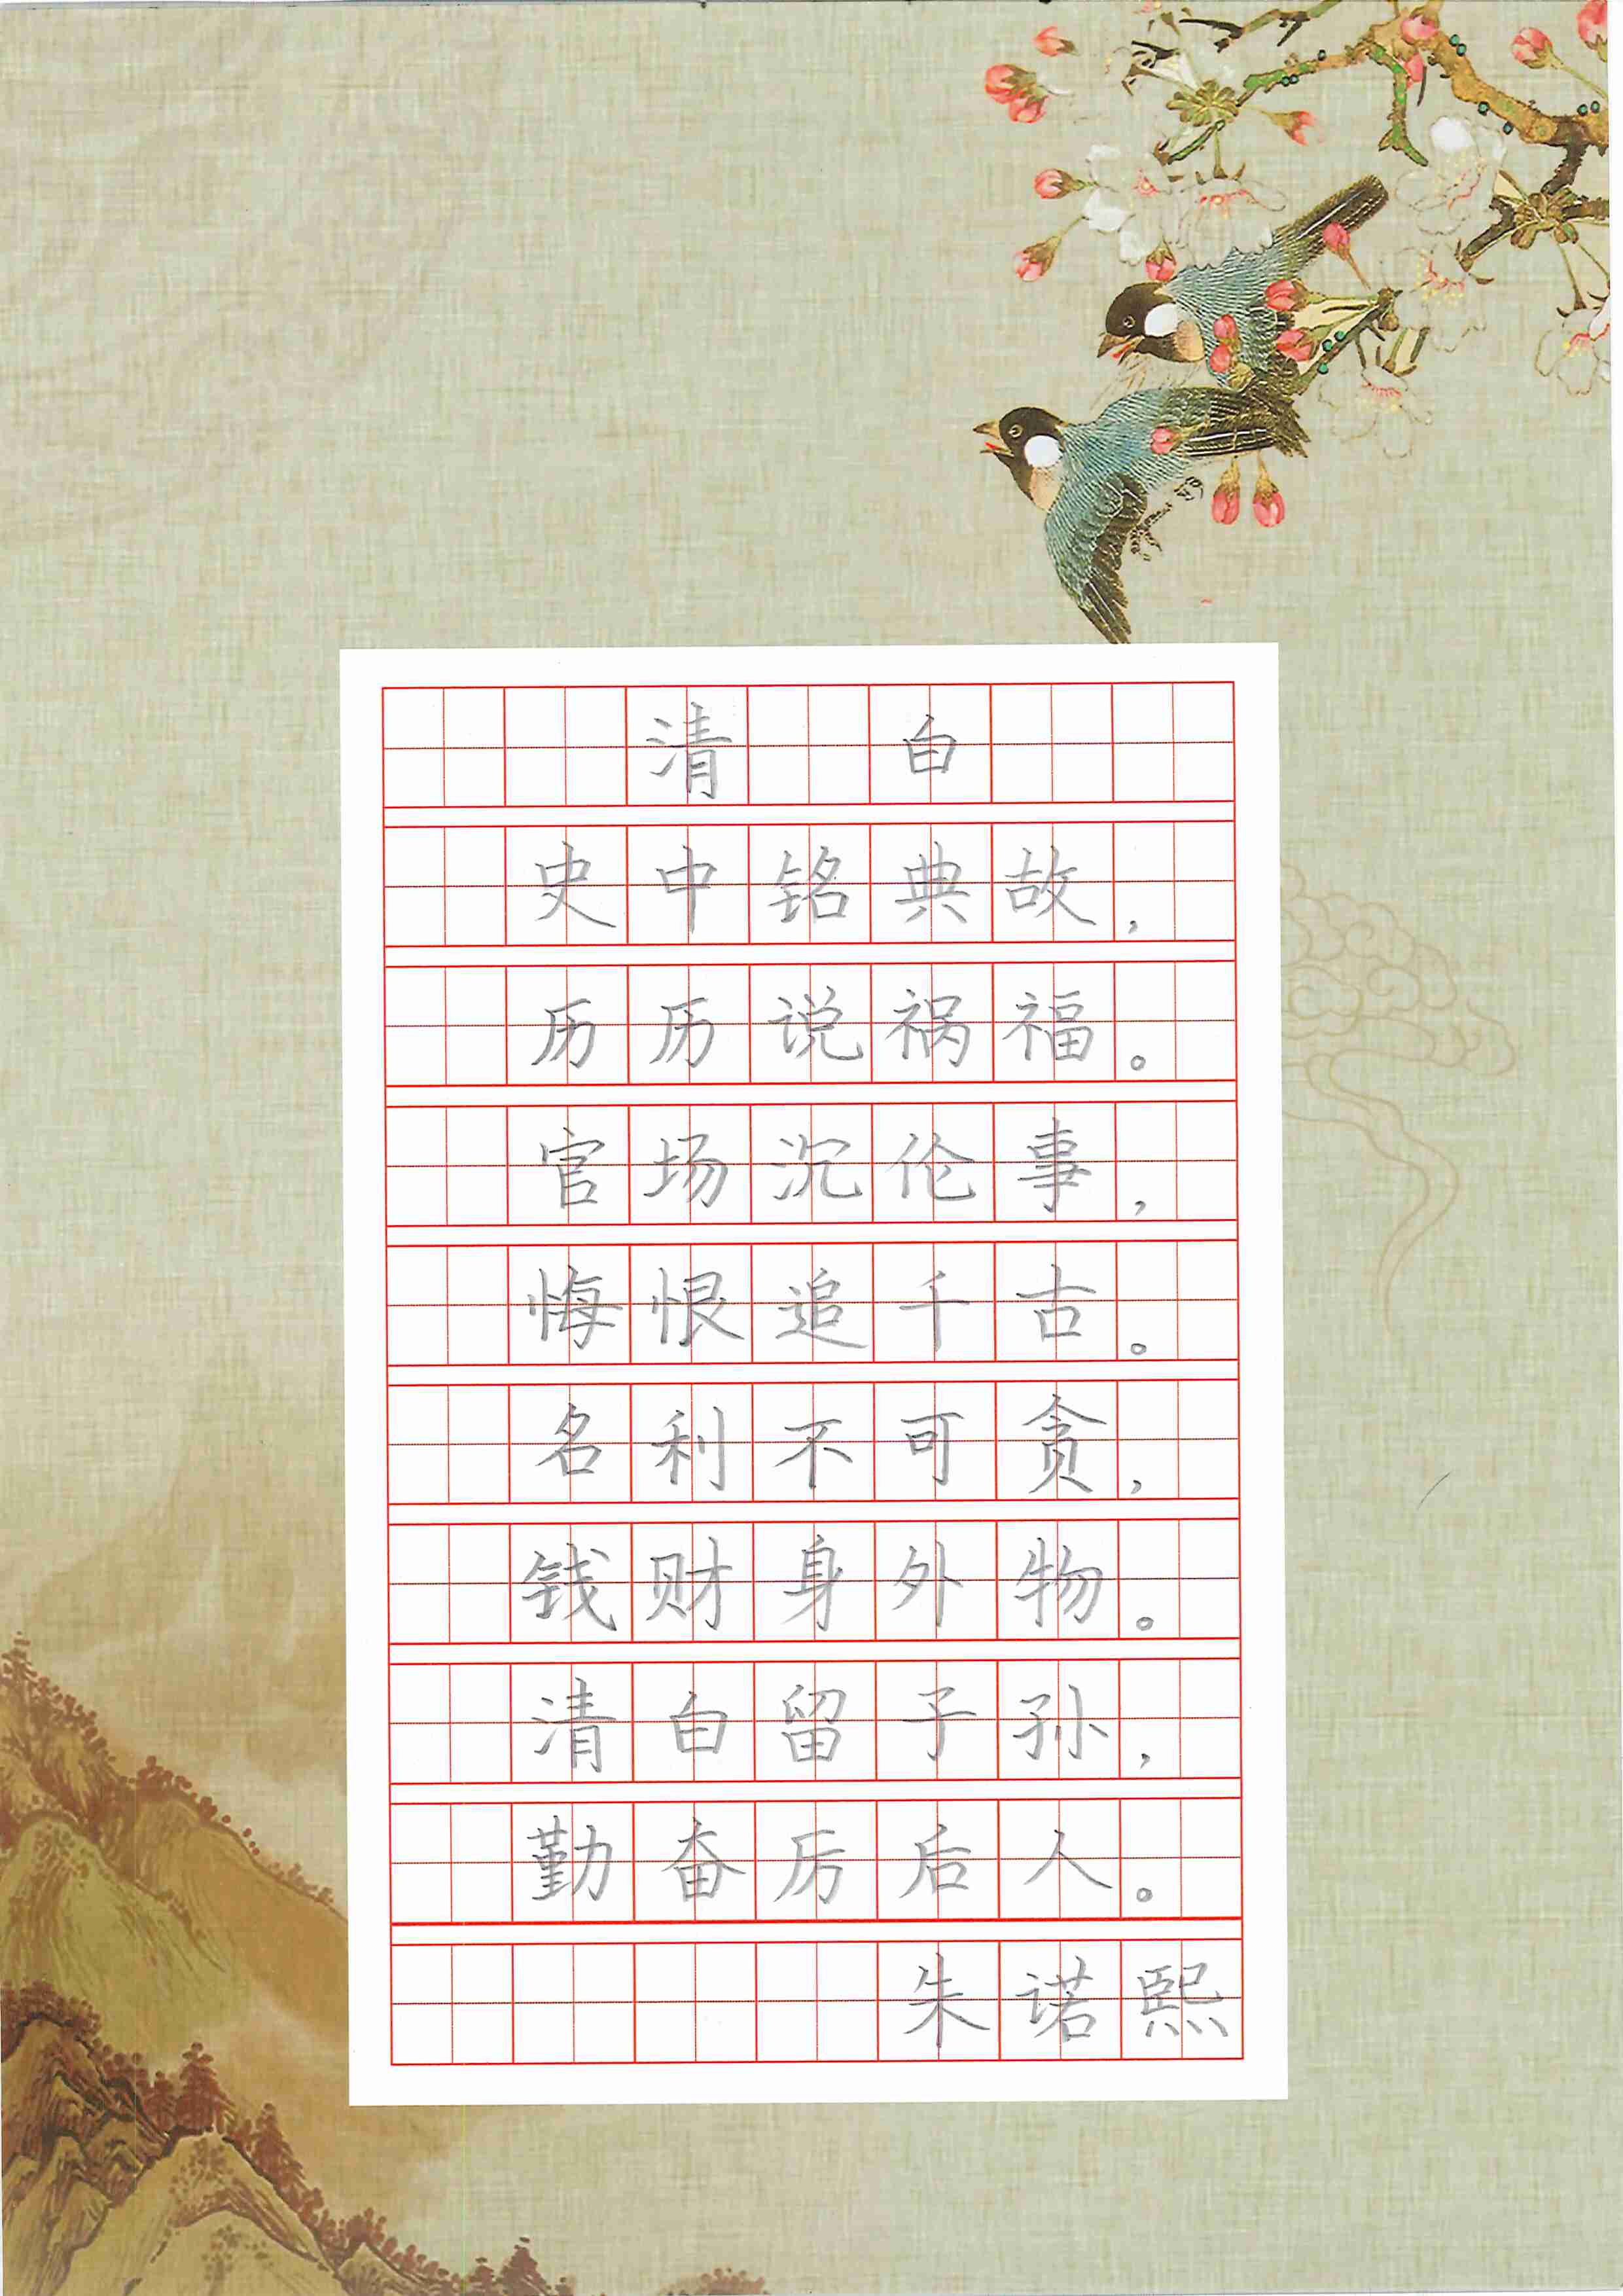 清 白
史中铭典故，
历历说祸福。
官场沉伦事，
悔恨追千古。
名利不可贪，
钱财身外物。
清白留子孙，
勤奋厉后人。
朱诺熙